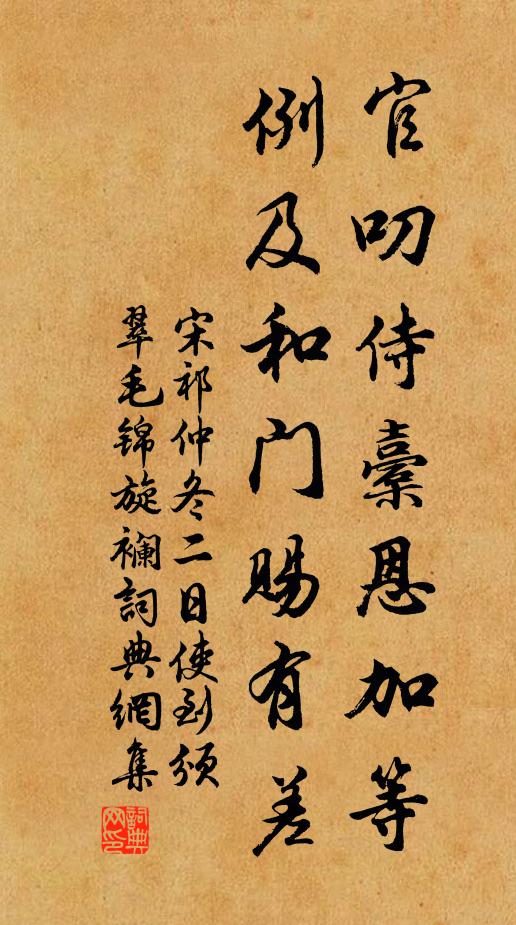 官叨侍橐恩加等
例及和门赐有差
宋祁仲冬二日使到颁
翠毛锦旋襕詞典網集
詞典网印